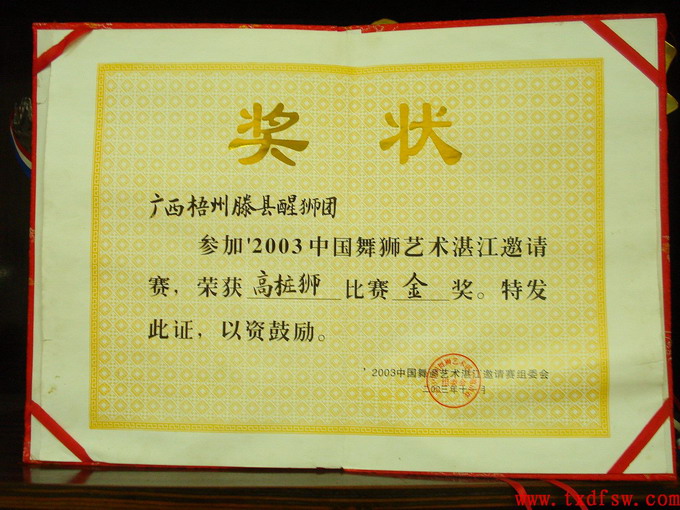 奖状
广西梧州滕县醒狮团
参加'2003中国舞狮艺术湛江邀请
赛，荣获 高桩狮 比赛 金 奖。特发
此证，以资鼓励。
'2003中国舞狮艺术湛江邀请赛组委会
二〇〇三年十 月
www.txdfsw.com